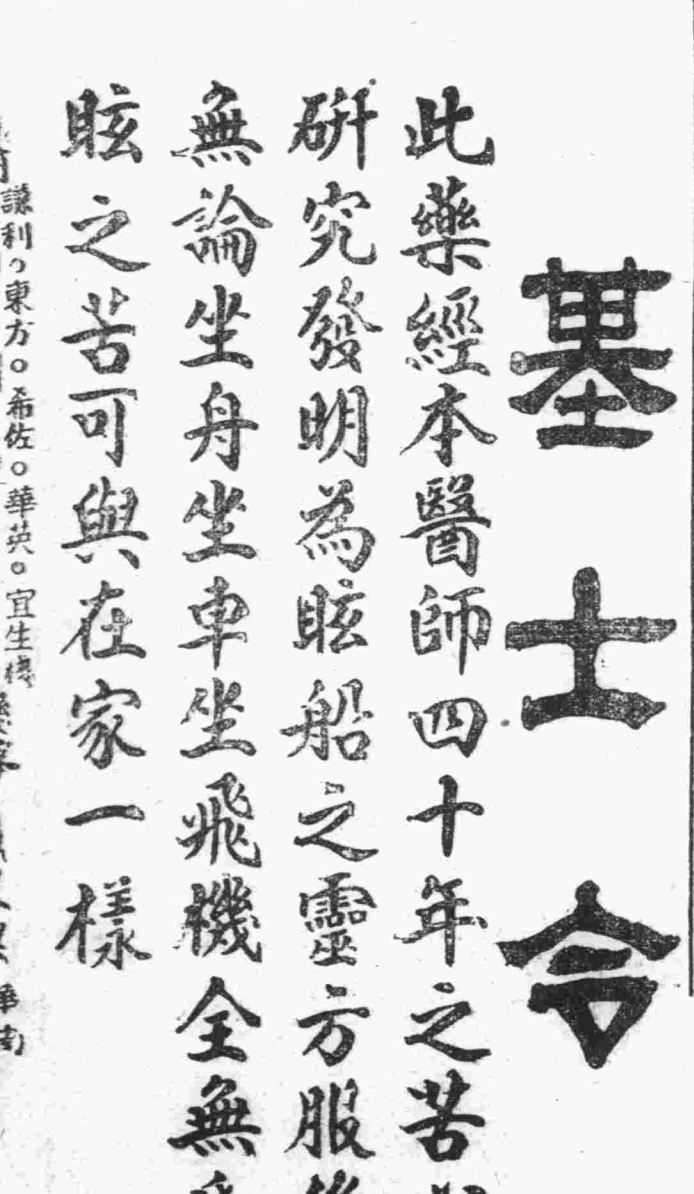 墓士令
此藥經本醫師四十年之苦
研究發明為眩船之靈方服後
無論坐舟坐車坐飛機全無
眩之苦可與在家一樣
謙利。東方。希佐。華英。宜生